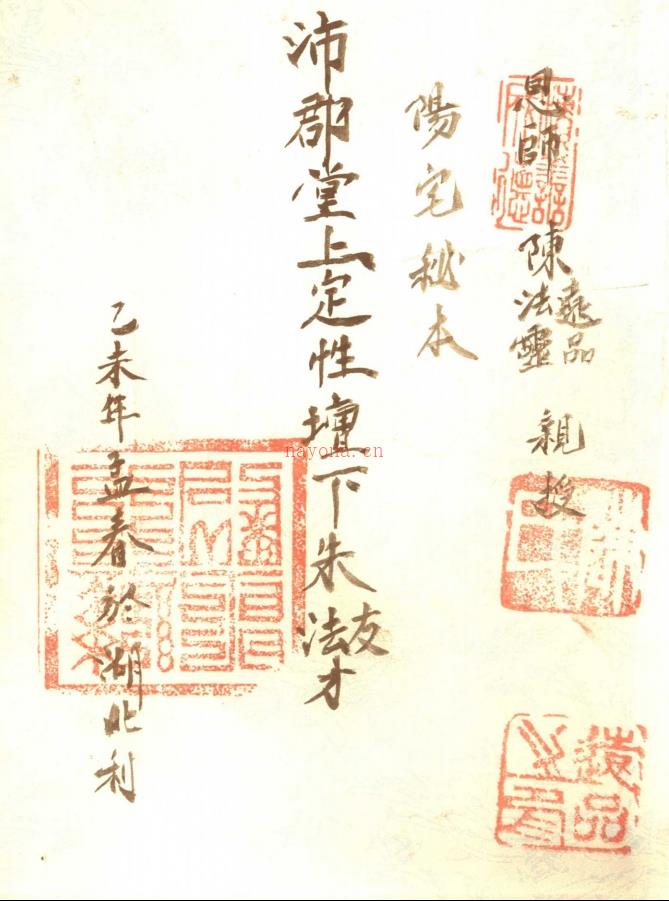 恩師 陳遠品法靈 親授
陽宅秘本
沛郡堂上定性壇下朱友法才
乙未年孟春於湖北利
nayona.cn